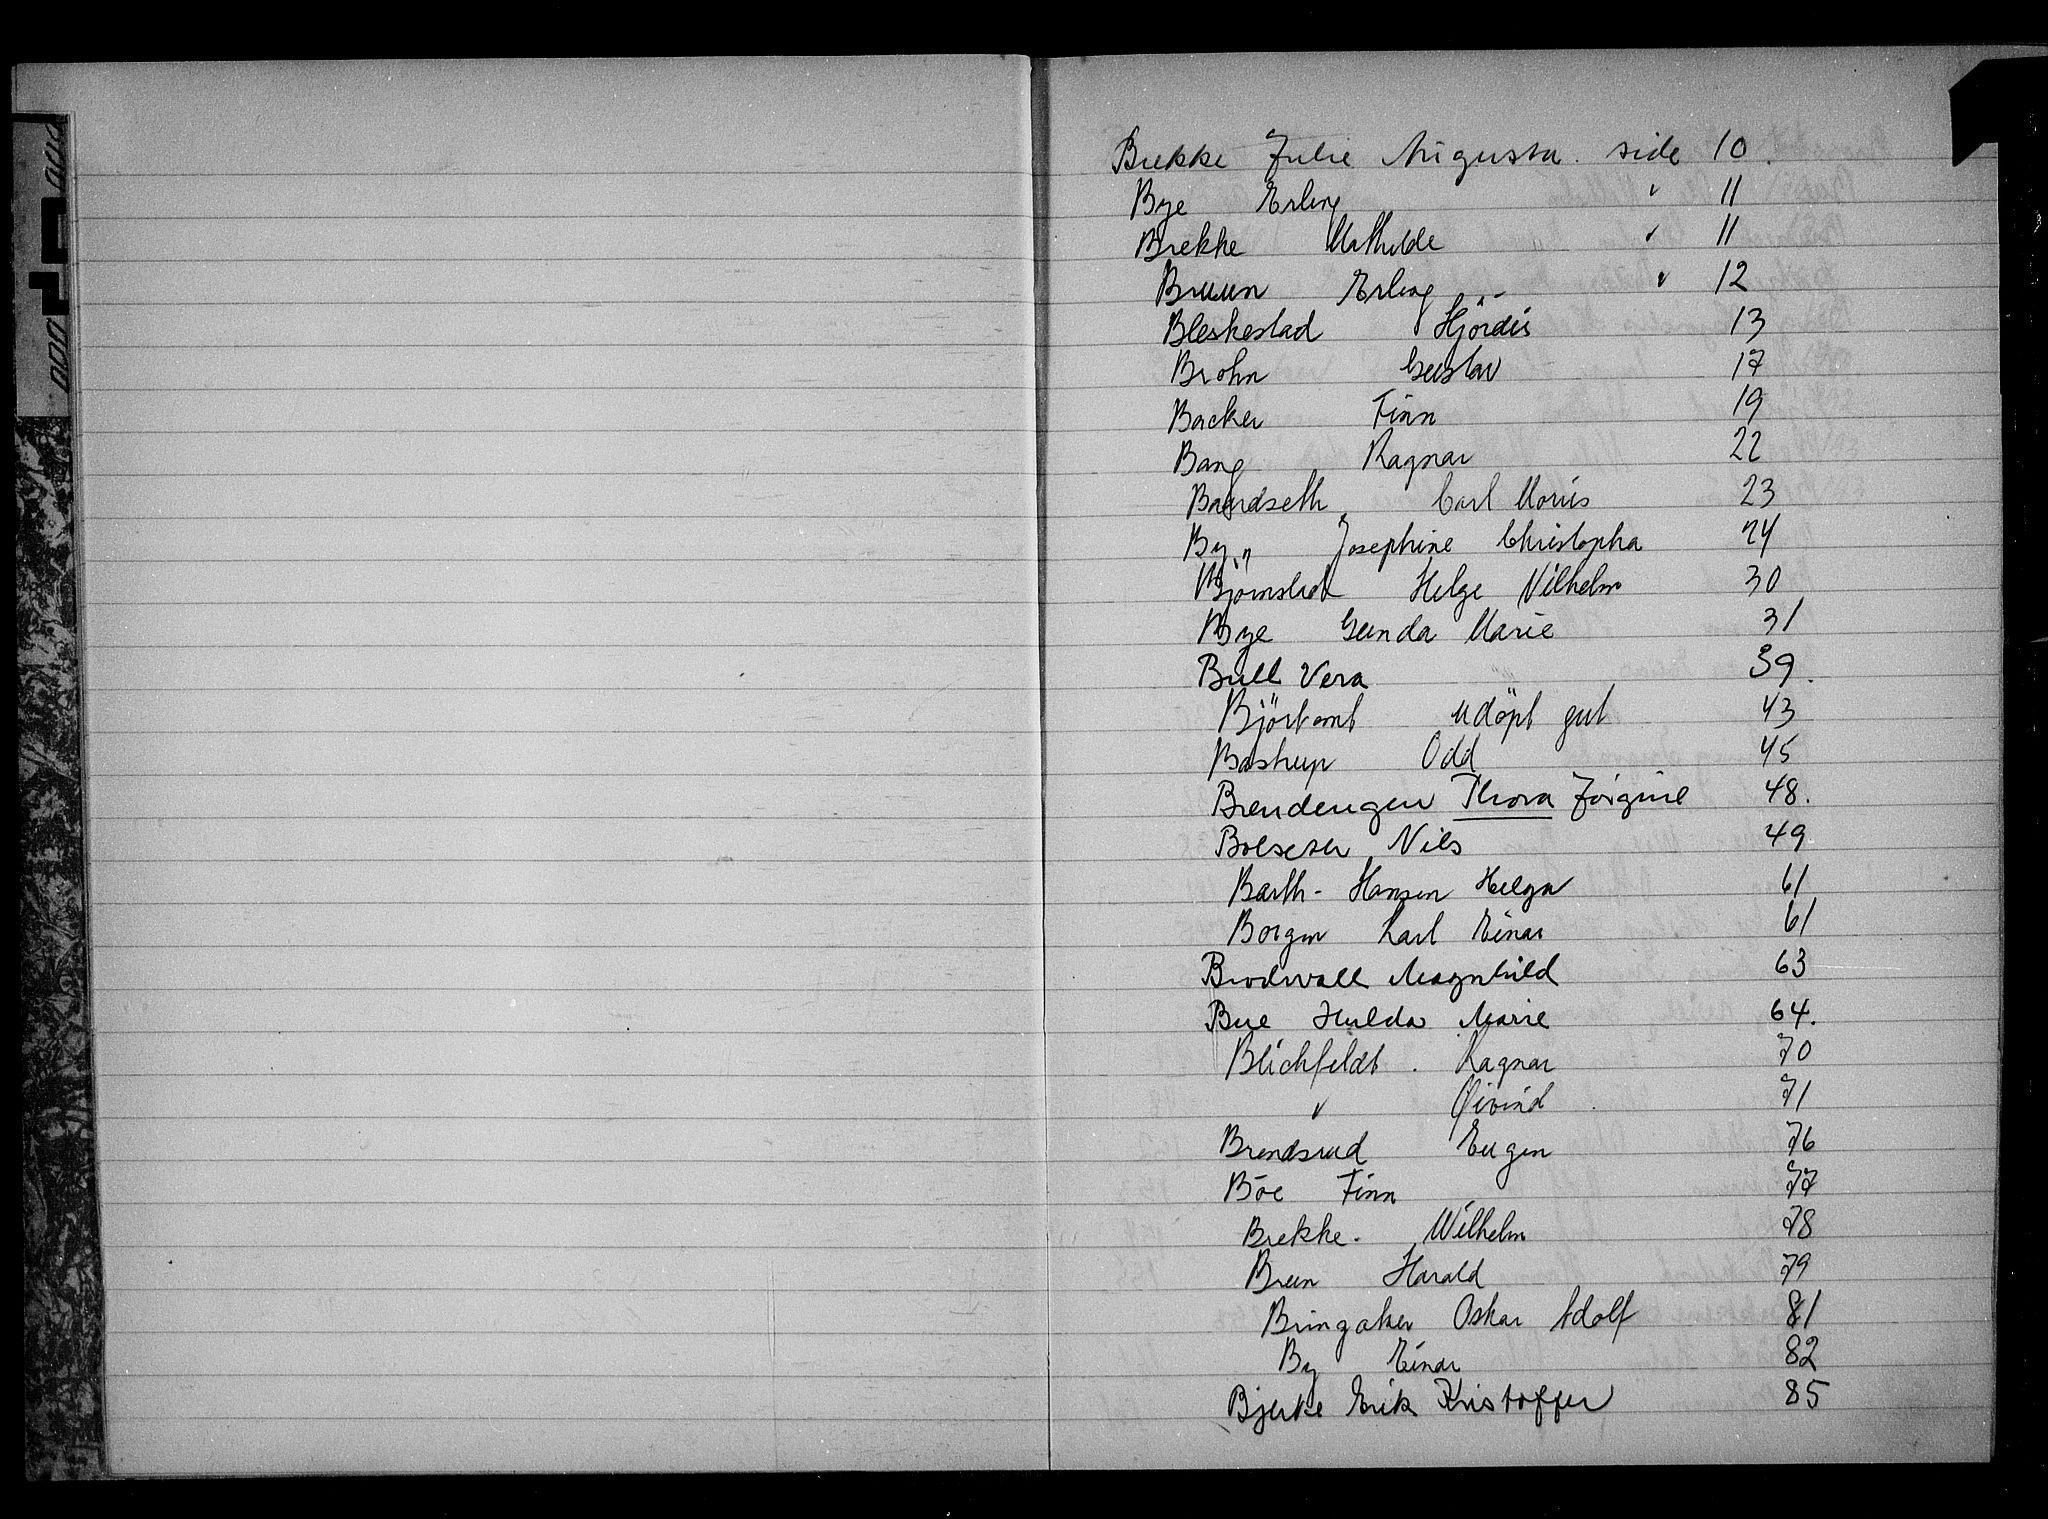 Brekke Julie Augusta. side 10.
Bye Erling " 11
Brekke Mathilde " 11
Bruun Erling " 12
Bleskestad Hjördis 13
Brohn Gustav 17
Backer Finn 19
Bang Ragnar 22
Baardseth Carl Moris 23
By, Josephine Christopha 24
Björnstad Helge Vilhelm 30
Bye Gunda Marie 31
Bull Vera 39.
Björtomt Udöpt gut 43
Bastrup Odd 45
Brendengen Thora Jörgine 48.
Nils 49
Barth-Hansen Helga 61
Borgen Karl Einar 61
Brodwall Magnhild 63
Bue Hulda Marie 64.
Blichfeldt. Ragnar 70
" Øivind 71
Brendsrud Eugen 76
Böe Finn 77
Brekke. Wilhelm 78
Bruun Harald 79
Bringaker Oskar Adolf 81
By Einar 82
Bjerke Erik Kristoffer 85